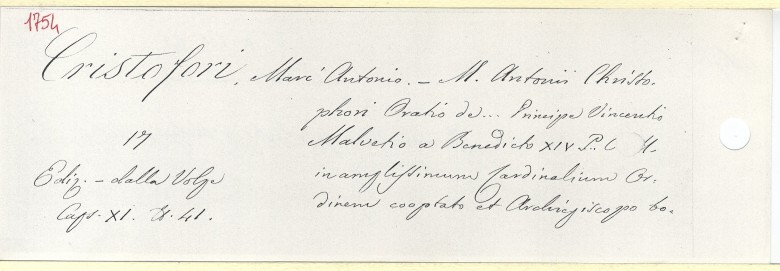 1754
Cristofori, Marc' Antonio. – M. Antonii Christo-
phori Oratio de... Principe Vincentio
17
Malvetio a Benedicto XIV P.
Ediz. – dalla Volpe
in amplissimum Cardinalium Or-
Caps. XI. N. 41.
dinem cooptato et Archiepiscopo bo-